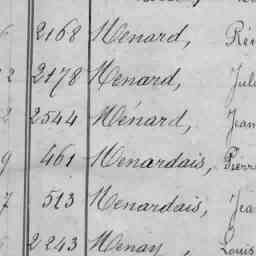 6 2168 Menard, Ré
2 2178 Menard, Juli
2 2544 Ménard, Jean
9 461 Menardais, Pierre
7 513 Menardais, Jea
2243 Menay, Louis